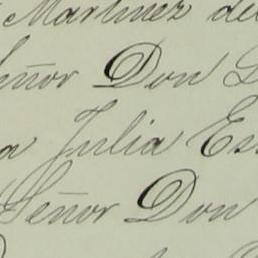 Martinez del
Señor Don
Julia Es
Señor Don